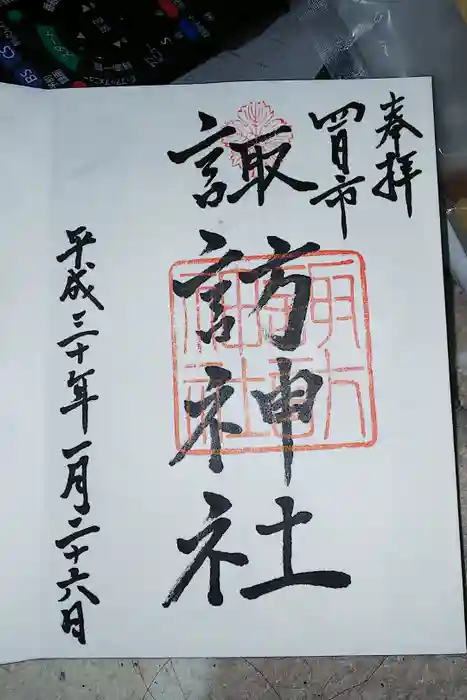 奉拝
四日市
諏訪神社
平成三十年一月二十六日